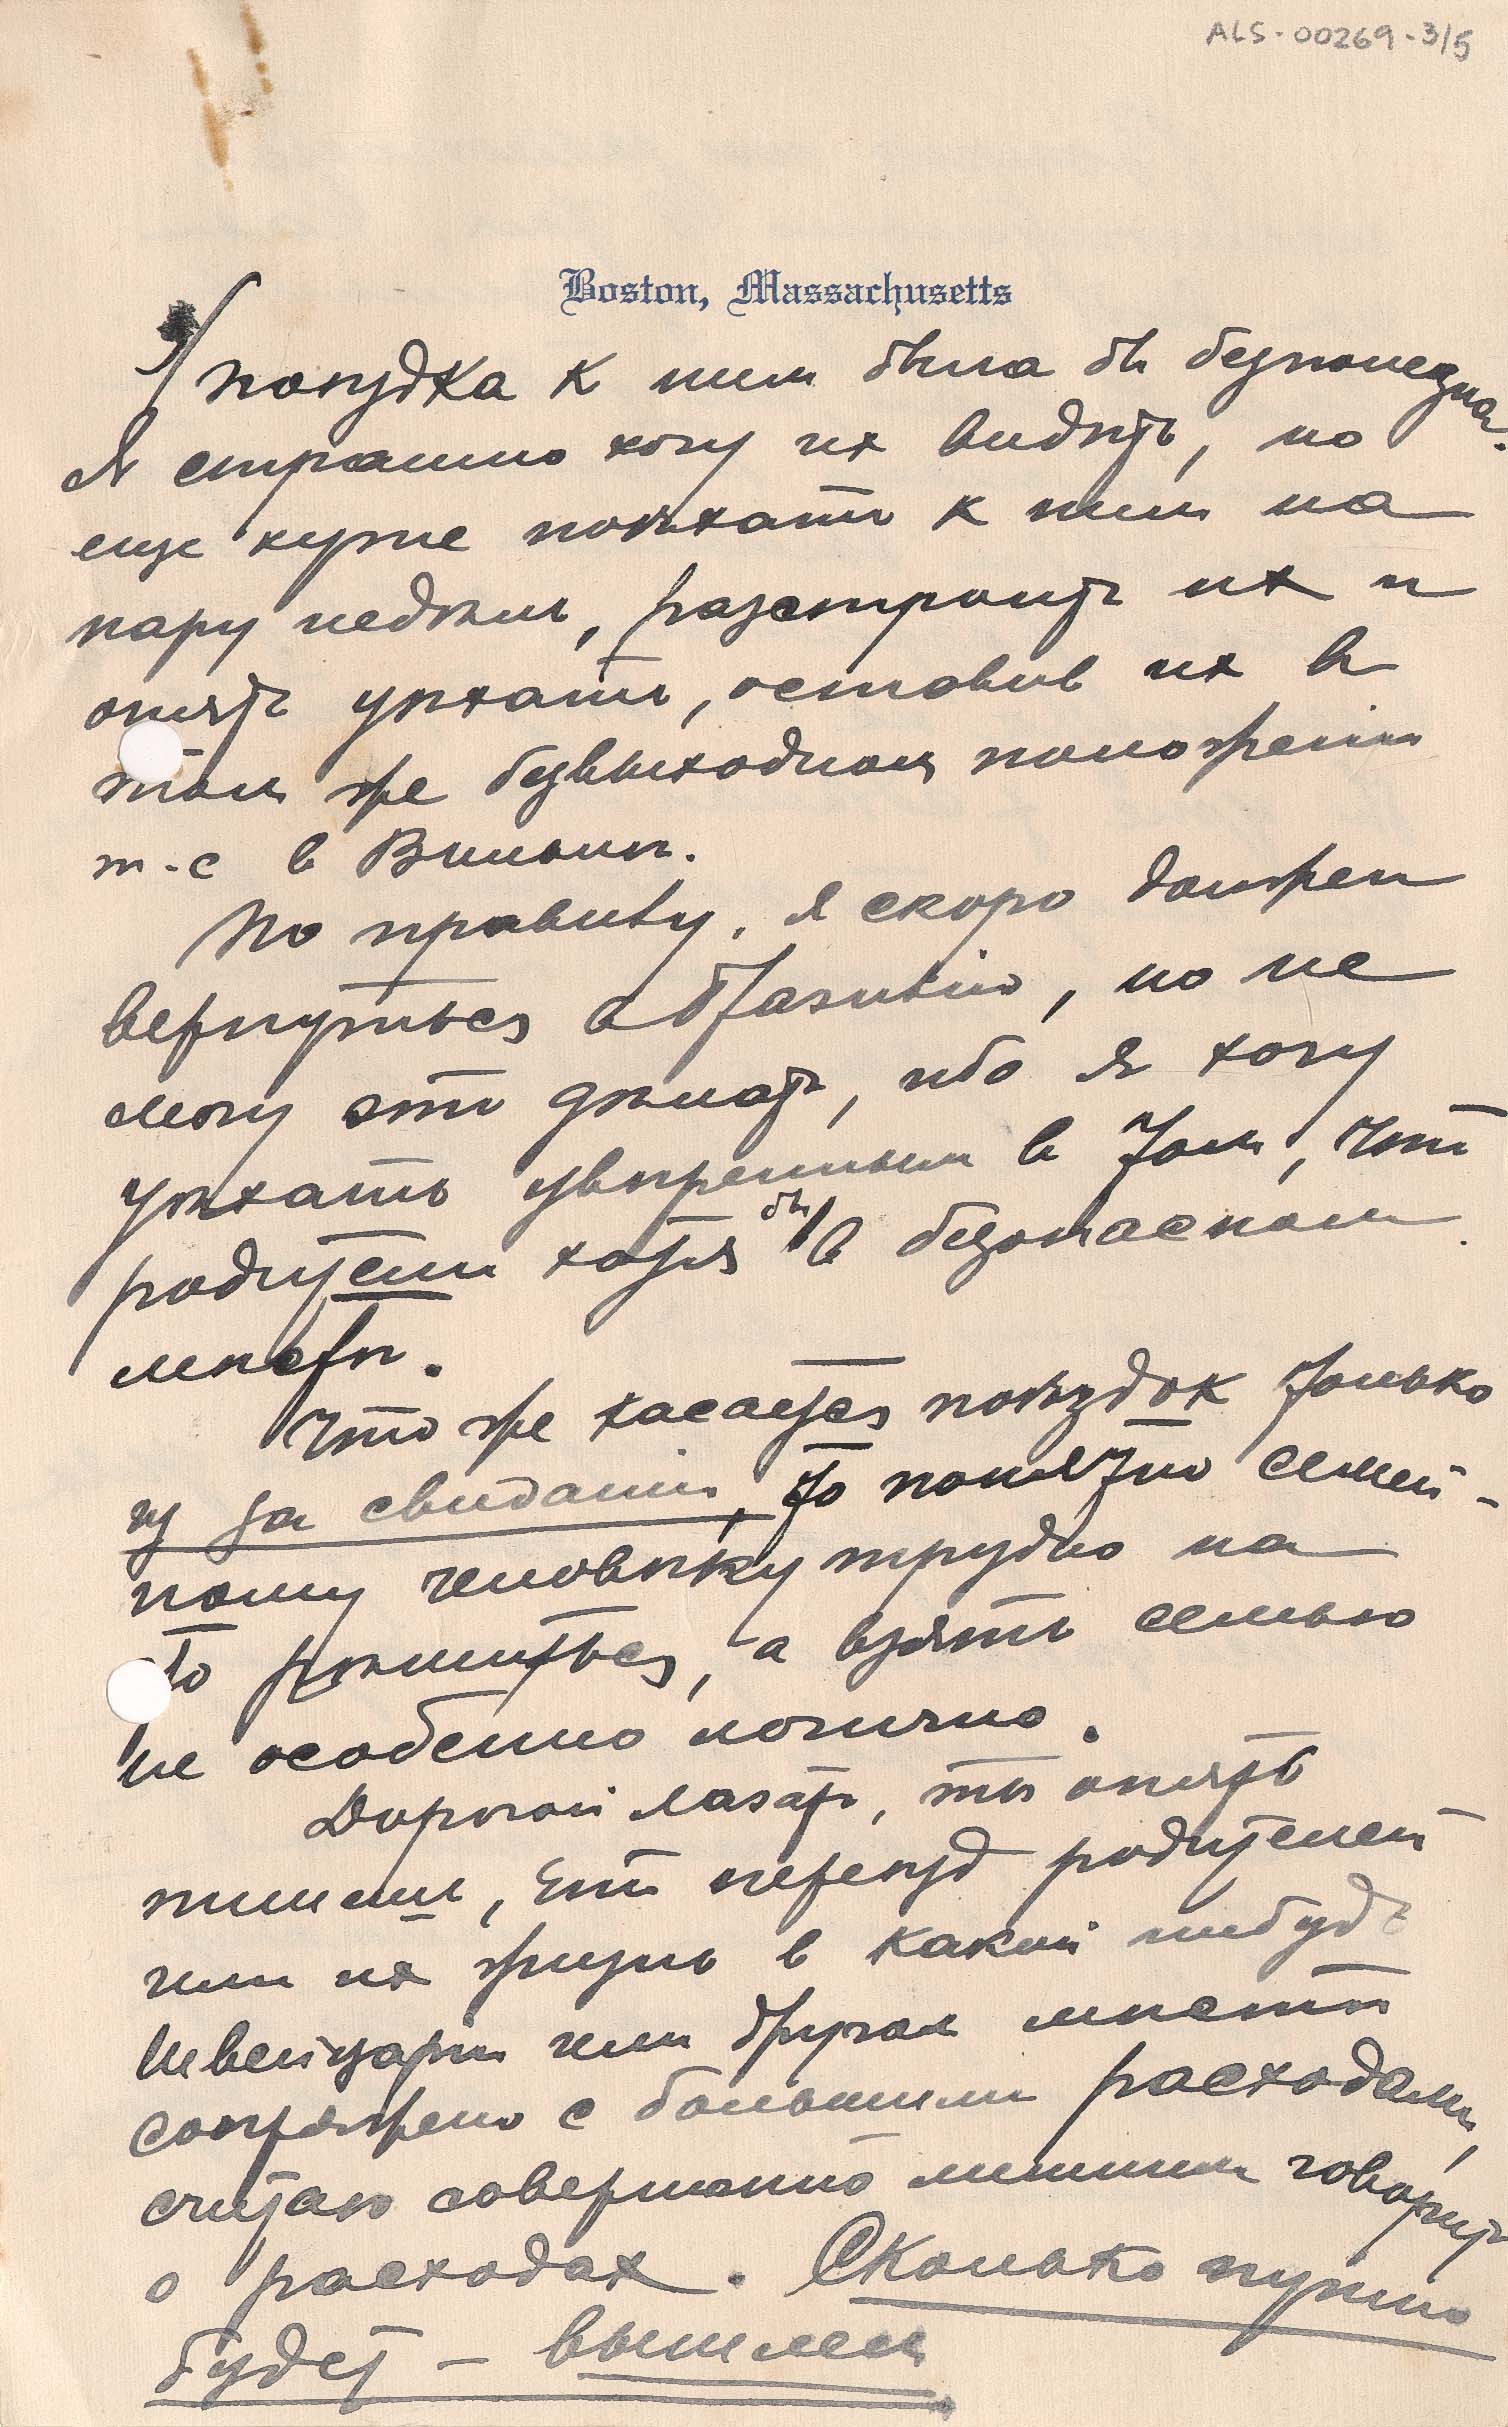 ALS-00269-3/5
Boston, Massachusetts
поѣздка к ним была бы безполезна.
Я страшно хочу их видѣть, но
еще хуже поѣхать к ним на
пару недѣль, разстроить их и
опять уѣхать, оставив их в
том же безвыходном положеніи
т-е в Вильнѣ.
По правилу, я скоро должен
вернуться в Бразилію, но не
могу это дѣлать, ибо я хочу
уѣхать увѣренным в том, что
родители хотя бы в безопасном
мѣстѣ.
Что же касается поѣздок только
из за свиданія, то понятно семей-
ному человѣку трудно на
то рѣшиться, а взять семью
не особенно логично.
Дорогой Лазарь, ты опять
пишешь, что переѣзд родителей
или их жизнь в какой нибудь
Швейцаріи или другом мѣстѣ
сопряжено с большими расходами,
считаю совершенно лишним говорить
о расходах. Сколько нужно
будет – вышлем